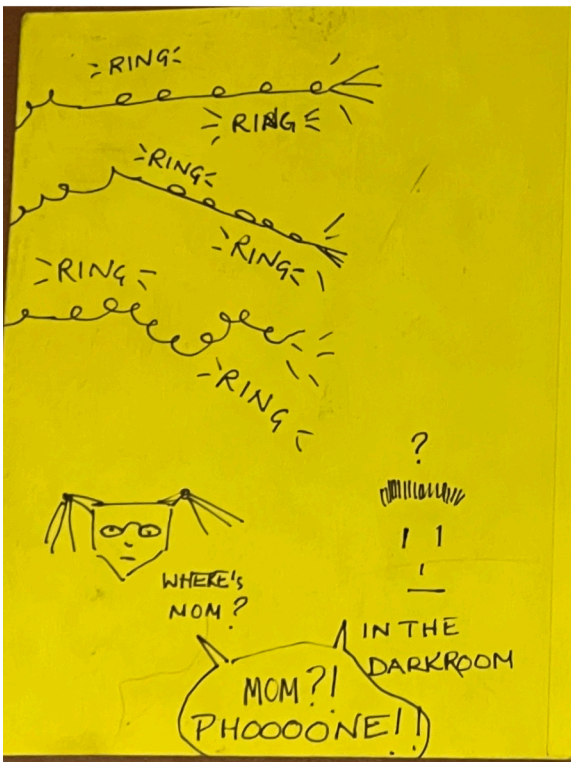 RING
RING
RING
RING
RING
RING
?
WHERE'S
MOM?
IN THE
DARKROOM
MOM?!
PHOOOONE!!